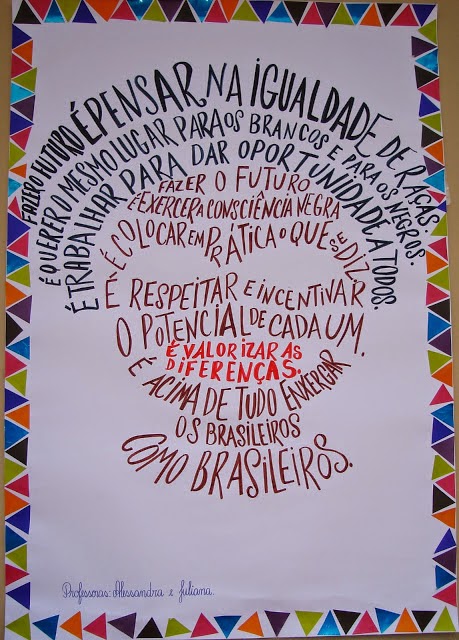 FAZER O FUTURO É PENSAR NA IGUALDADE DE RAÇAS.
É QUERER O MESMO LUGAR PARA OS BRANCOS E PARA OS NEGROS.
É TRABALHAR PARA DAR OPORTUNIDADE A TODOS.
FAZER O FUTURO
É EXERCER A CONSCIÊNCIA NEGRA
É COLOCAR EM PRÁTICA O QUE SE DIZ
É RESPEITAR E INCENTIVAR
O POTENCIAL DE CADA UM.
É VALORIZAR AS
DIFERENÇAS.
É ACIMA DE TUDO ENXERGAR
OS BRASILEIROS
COMO BRASILEIROS.
Professoras: Alessandra e Juliana.